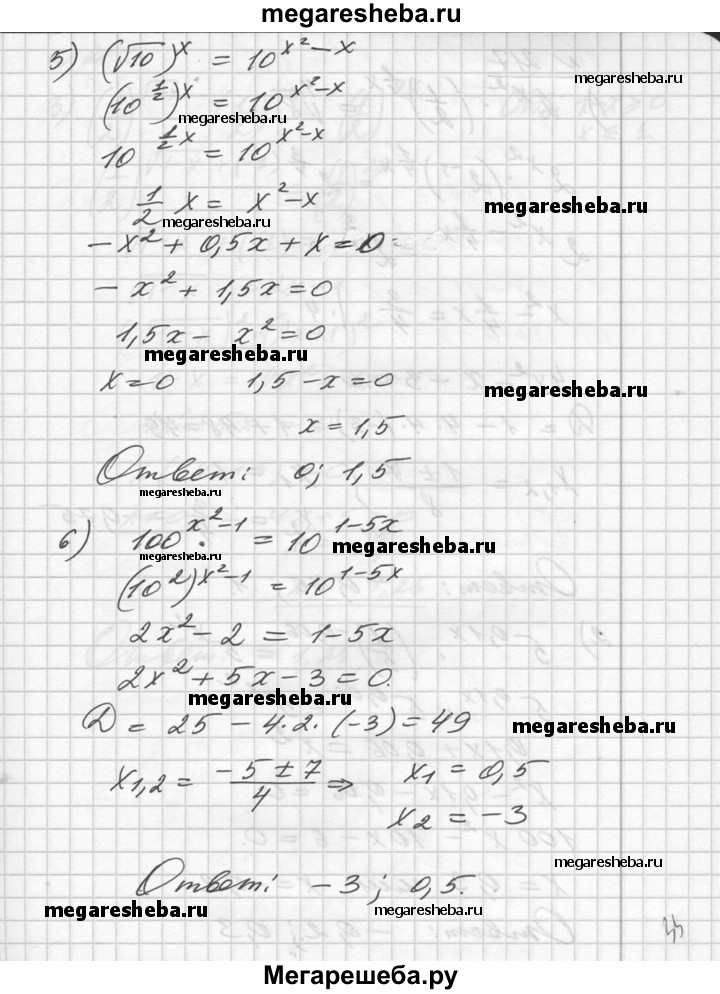 megaresheba.ru
5) (√10)^x = 10^(x²-x)
megaresheba.ru
(10^(1/2))^x = 10^(x²-x)
megaresheba.ru
10^(1/2 x) = 10^(x²-x)
1/2 x = x²-x
megaresheba.ru
megaresheba.ru
-x² + 0,5x + x = 0
-x² + 1,5x = 0
1,5x - x² = 0
megaresheba.ru
x=0 1,5-x=0
megaresheba.ru
x = 1,5
Ответ: 0; 1,5
megaresheba.ru
6) 100^(x²-1) = 10^(1-5x)
megaresheba.ru
megaresheba.ru
(10²)^(x²-1) = 10^(1-5x)
2x²-2 = 1-5x
2x²+5x-3=0.
megaresheba.ru
D = 25 - 4·2·(-3) = 49
megaresheba.ru
x1,2 = (-5±7)/4 ⇒ x1 = 0,5
x2 = -3
megaresheba.ru
Ответ: -3; 0,5.
megaresheba.ru
megaresheba.ru
Мегарешеба.ру